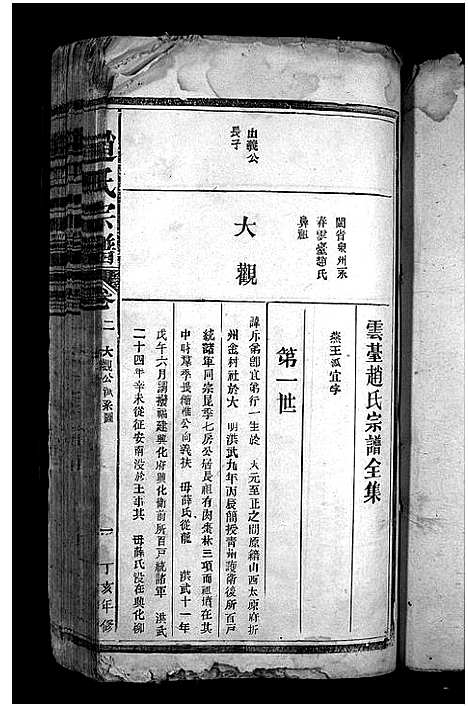 雲臺趙氏宗譜全集
燕王派宜字
第一世
閩省泉州二永
春雲臺趙氏
鼻祖
大觀
由義公
長子
諱斥弟卽宜弟行一生於 大元至正之間原籍山西太原府折
州金利社於大 明洪武九年丙辰簡授靑州護衛後所百戶
統諸軍同宗昆季七房公居長祖有肉棗林三項而祖墳在其
中時葉季長禮惟公向義扶 毋薛氏從龍 洪武十一年
戊午六月調撥福建興化府興化衛前所百戶統諸軍 洪武
二十四年辛未從征安南沒於王事其 毋薛氏沒在興化柳
趙氏宗譜
卷之二
大觀公派系圖
一
丁亥年修